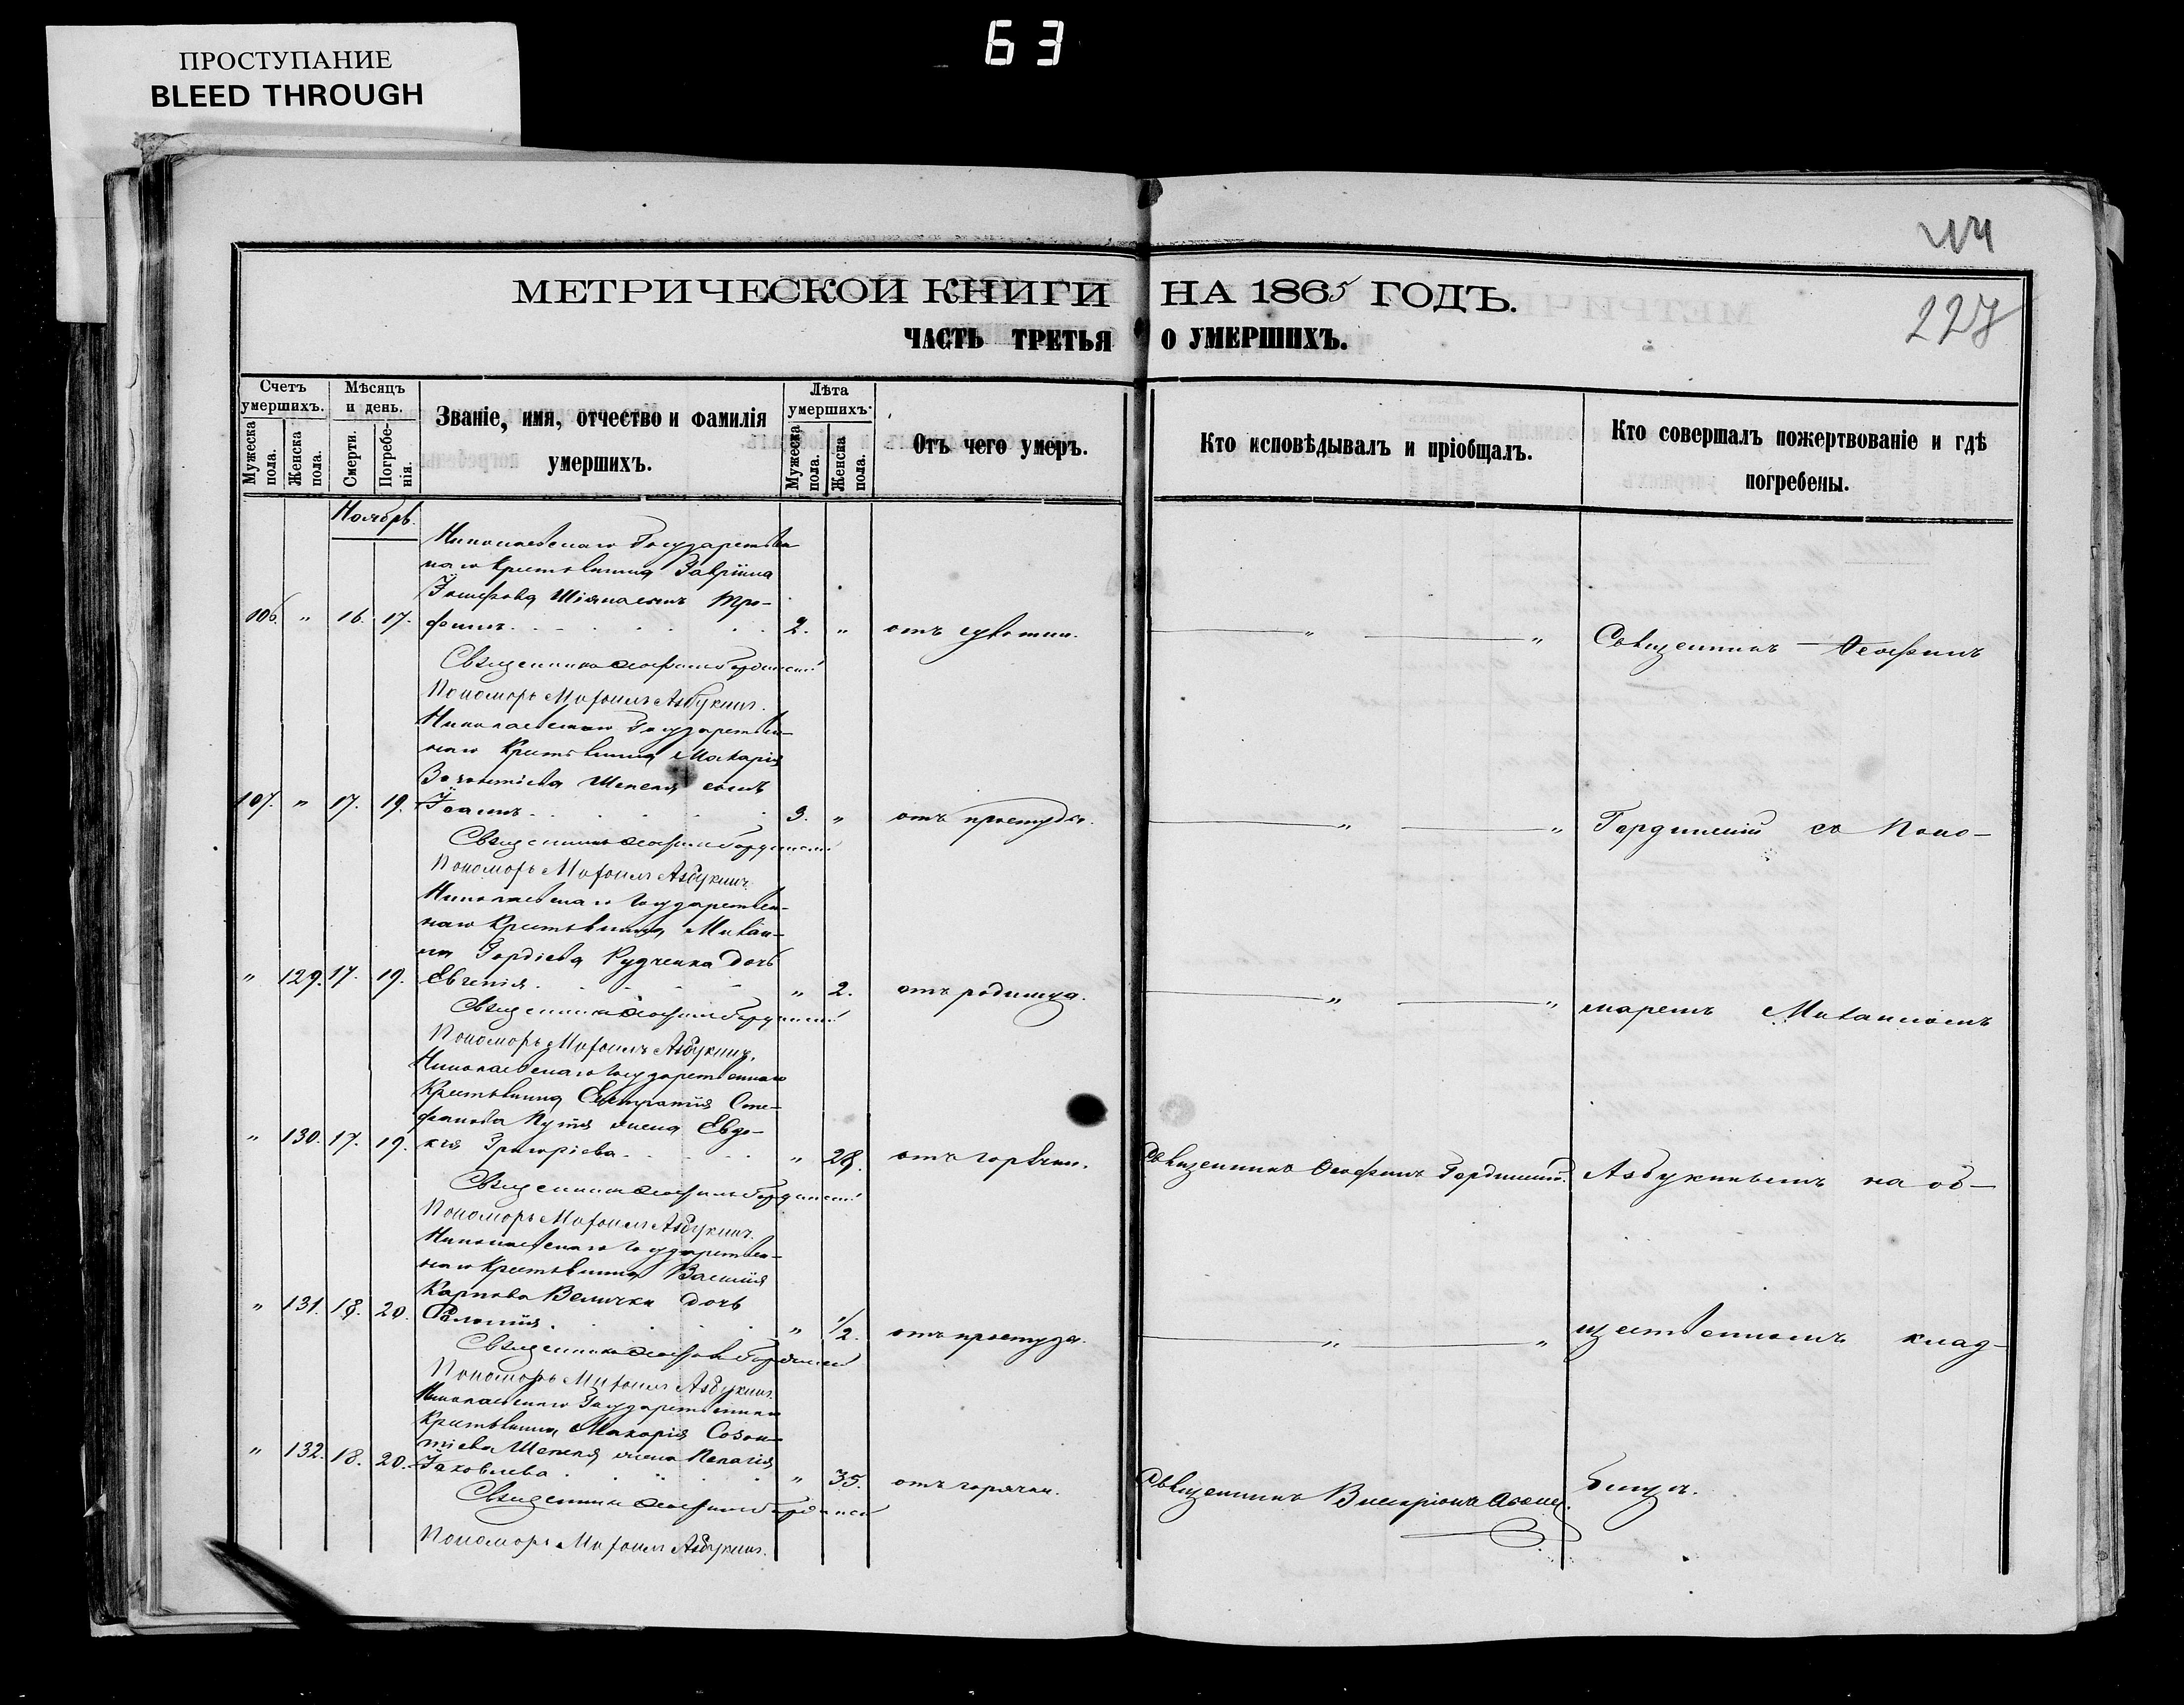 63
ПРОСТУПАНИЕ
BLEED THROUGH
44
227
МЕТРИЧЕСКОЙ КНИГИ НА 1865 ГОДЪ.
ЧАСТЬ ТРЕТЬЯ О УМЕРШИХЪ.
Счетъ умершихъ.
Мужеска пола.
Женска пола.
Мѣсяцъ и день.
Смерти.
Погребенія.
Званіе, имя, отчество и фамилія
умершихъ.
Лѣта умершихъ.
Мужеска пола.
Женска пола.
Отъ чего умеръ.
Кто исповѣдывалъ и пріобщалъ.
Кто совершалъ пожертвованіе и гдѣ
погребены.
Ноябрь.
Николаевскаго Государствен
наго Крестьянина Гавріила
Іосифова сынъ Тро-
106. " 16. 17. фимъ. 2. " отъ " " Священникъ Ѳеофилъ
Священникъ Ѳеофилъ Гординскій
Пономарь Михаилъ Азбукинъ.
Николаевскаго Государствен-
наго Крестьянина Макарія
Созонтіева Шепеля сынъ
107. " 17. 19. Іоаннъ. 3. " отъ простуды. " " Гординскій со Поно-
Священникъ Ѳеофилъ Гординскій
Пономарь Михаилъ Азбукинъ.
Николаевскаго Государствен-
наго Крестьянина Михаи-
ла Гордіева Рудченка дочь
" 129. 17. 19. Евгенія. " 2. отъ родимца. " " маремъ Михаиломъ
Священникъ Ѳеофилъ Гординскій
Пономарь Михаилъ Азбукинъ.
Николаевскаго Государственнаго
Крестьянина Евстратія Сте-
фанова жена Евдо-
" 130. 17. 19. кія Григоріева. " 28. отъ горячки. Священникъ Ѳеофилъ Гординскій. Азбукинымъ на об-
Священникъ Ѳеофилъ Гординскій
Пономарь Михаилъ Азбукинъ.
Николаевскаго Государствен-
наго Крестьянина Василія
Карпова Велички дочь
" 131. 18. 20. " 1/2. отъ простуды. " " щественномъ клад-
Священникъ Ѳеофилъ Гординскій
Пономарь Михаилъ Азбукинъ.
Николаевскаго Государственнаго
Крестьянина Макарія Созон-
тіева Шепеля жена Пелагія
" 132. 18. 20. Іаковлева. " 35. отъ горячки. Священникъ Виссаріонъ бищѣ.
Священникъ Ѳеофилъ Гординскій
Пономарь Михаилъ Азбукинъ.